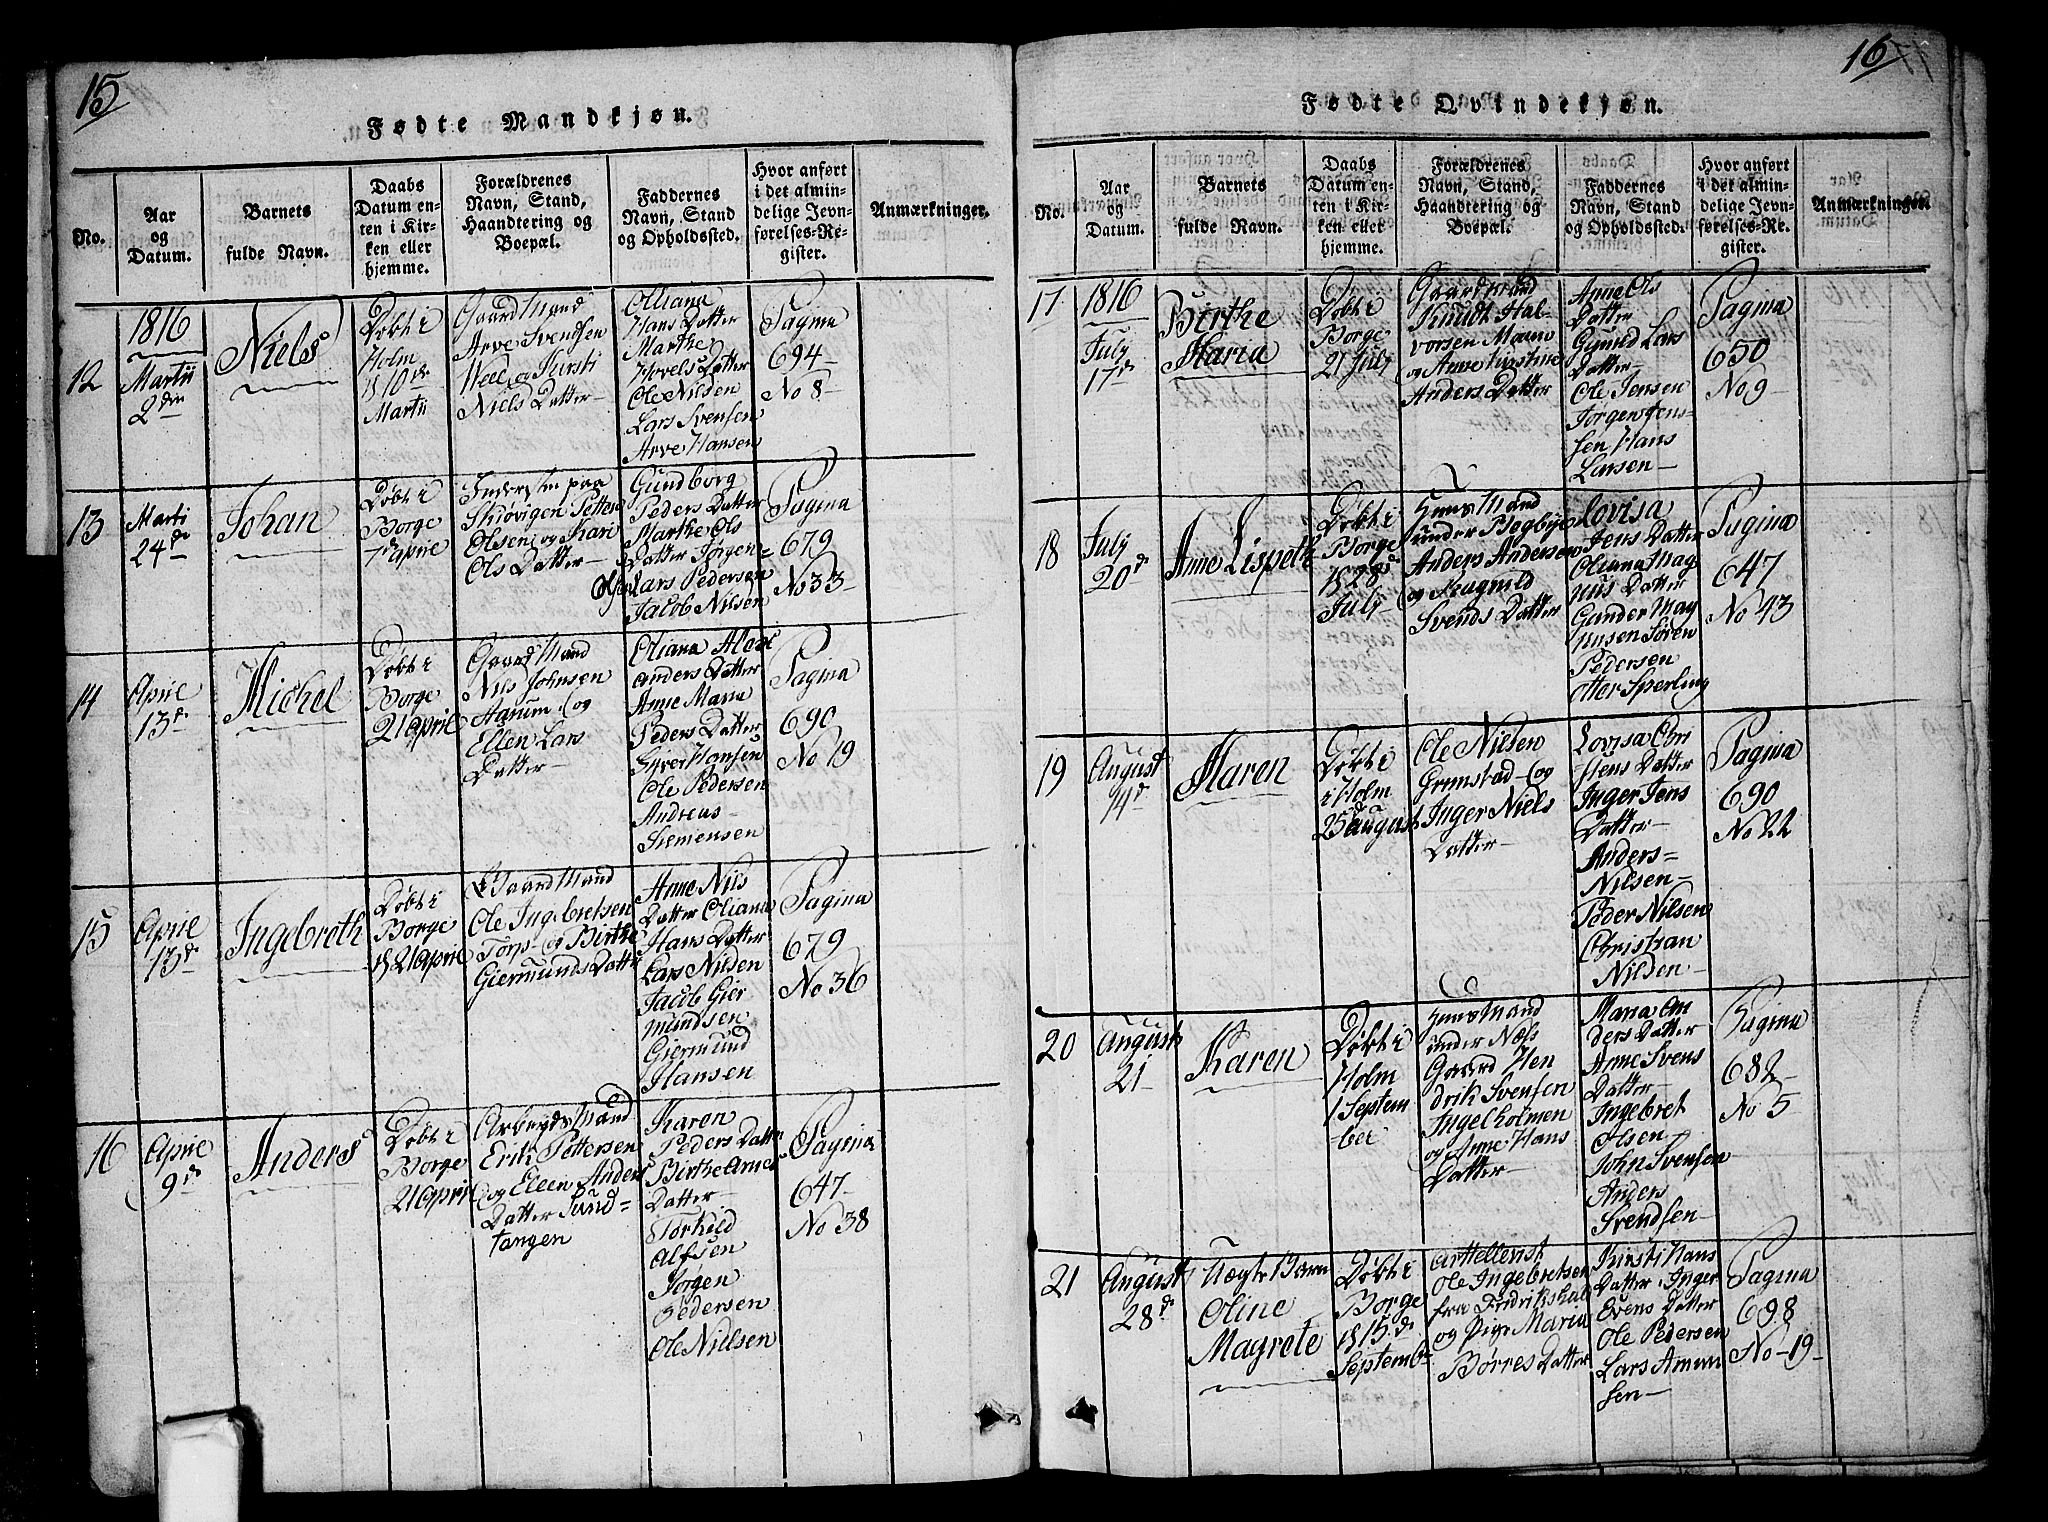 15
Fødte Mandkjøn.
No.
Aar
og
Datum.
Barnets
fulde Navn.
Daabs
Datum en-
ten i Kir-
ken eller
hjemme.
Forældrenes
Navn, Stand,
Haandtering og
Boepæl.
Faddernes
Navn, Stand
og Opholdssted.
Hvor anført
i det almin-
delige Jevn-
førelses-Re-
gister.
Anmærkninger.
12
1816
Martii
2den
Niels
Døbt i
Holm
d 10de
Martii
Gaard Mand
Arve Svendsen
og Kirsti
Niels Datter
Olliana
Hans Datter
Marthe
Hovels Datter
Ole Nilsen
Lars Svensen
Arve Hansen
Pagina
694
No 8
13
Marti
24de
Johan
Døbt i
Borge
7d april
Inderster paa
Skiøvigen Petter
Olsen og Kari
Ols Datter
Gundborg
Peders Datter
Marthe Ols
Datter Jørgen
Olsen Lars Pedersen
Jacob Nilsen
Pagina
679
No 33
14
Aprie
13d
Michel
Døbt i
Borge
21 april
Gaard Mand
Nils Johnsen
Aarum og
Ellen Lars
Datter
Oliana Alex
anders Datter
Anne Maria
Peders Datter
Siver Hansen
Ole Pedersen
Andreas
Siemensen
Pagina
690
No 19
15
Aprie
13d
Ingebreth
Døbt i
Borge
d 21 april
Gaard Mand
Ole Ingebretsen
Torp og Birthe
Giermunds Datter
Anne Nils
Datter Oliana
Hans Datter
Lars Nilsen
Jacob Gier
mundsen
Giermund
Hansen
Pagina
679
No 36
16
Aprie
9d
Anders
Døbt i
Borge
21 april
Arbeyds Mand
Erik Pettersen
og Ellen Anders
Datter Sund=
tangen
Karen
Peders Datter
Birthe Arnes
Datter
Torkild
Alfsen
Jørgen
Pedersen
Ole Nielsen
Pagina
647
No 38
16
Fødte Qvindekjøn.
No.
Aar
og
Datum.
Barnets
fulde Navn.
Daabs
Datum en-
ten i Kir-
ken eller
hjemme.
Forældrenes
Navn, Stand,
Haandtering og
Boepæl.
Faddernes
Navn, Stand
og Opholdssted.
Hvor anført
i det almin-
delige Jevn-
førelses-Re-
gister.
Anmærkninger.
17
1816
Julj
17d
Birthe
Maria
Døbt i
Borge
21 Julj
Gaardmand
Knudt Hal-
vorsen Moum
og Anne Kirstine
Anders Datter
Anne Ols
Datter
Gunild Lars
Datter
Ole Jensen
Jørgen Jens-
sen Hans
Larsen
Pagina
650
No 9
18
Julj
20d
Anne Lispeth
Døbt i
Borge
d 28d
Julj
Huus Mand
under
Anders Andersen
og Ragnild
Svends Datter
Lovisa
Jens Datter
Oliana Mag
nus Datter
Gunder Mag
nusen Søren
Pedersen
Otter Sperling
Pagina
647
No 43
19
August
14d
Maren
Døbt i
i Holm
25d august
Ole Nilsen
Grimstad og
Inger Niels
Datter
Lovisa Chri
stens Datter
Inger Jens
Datter
Anders
Nilsen
Peder Nilsen
Christian
Nilsen
Pagina
690
No 22
20
August
21
Karen
Døbt i
Holm
1 Septem
ber
Huus Mand
under Næss
Gaard Hen
drik Svensen
Ingelholmen
og Anne Hans
Datter
Maria An
ders Datter
Anne Svens
Datter
Ingebret
Olsen
John Svensen
Anders
Svendsen
Pagina
682
No 5
21
August
28d
Uægte Barn
Oline
Magrete
Døbt i
Borge
d 15de
Septemb
Arttellerist
Ole Ingebretsen
fra Fridrikshal
og Pige Maria
Børres Datter
Kirsti Hans
Datter Inger
Evens Datter
Ole Pedersen
Lars Amun
sen
Pagina
698
No 19